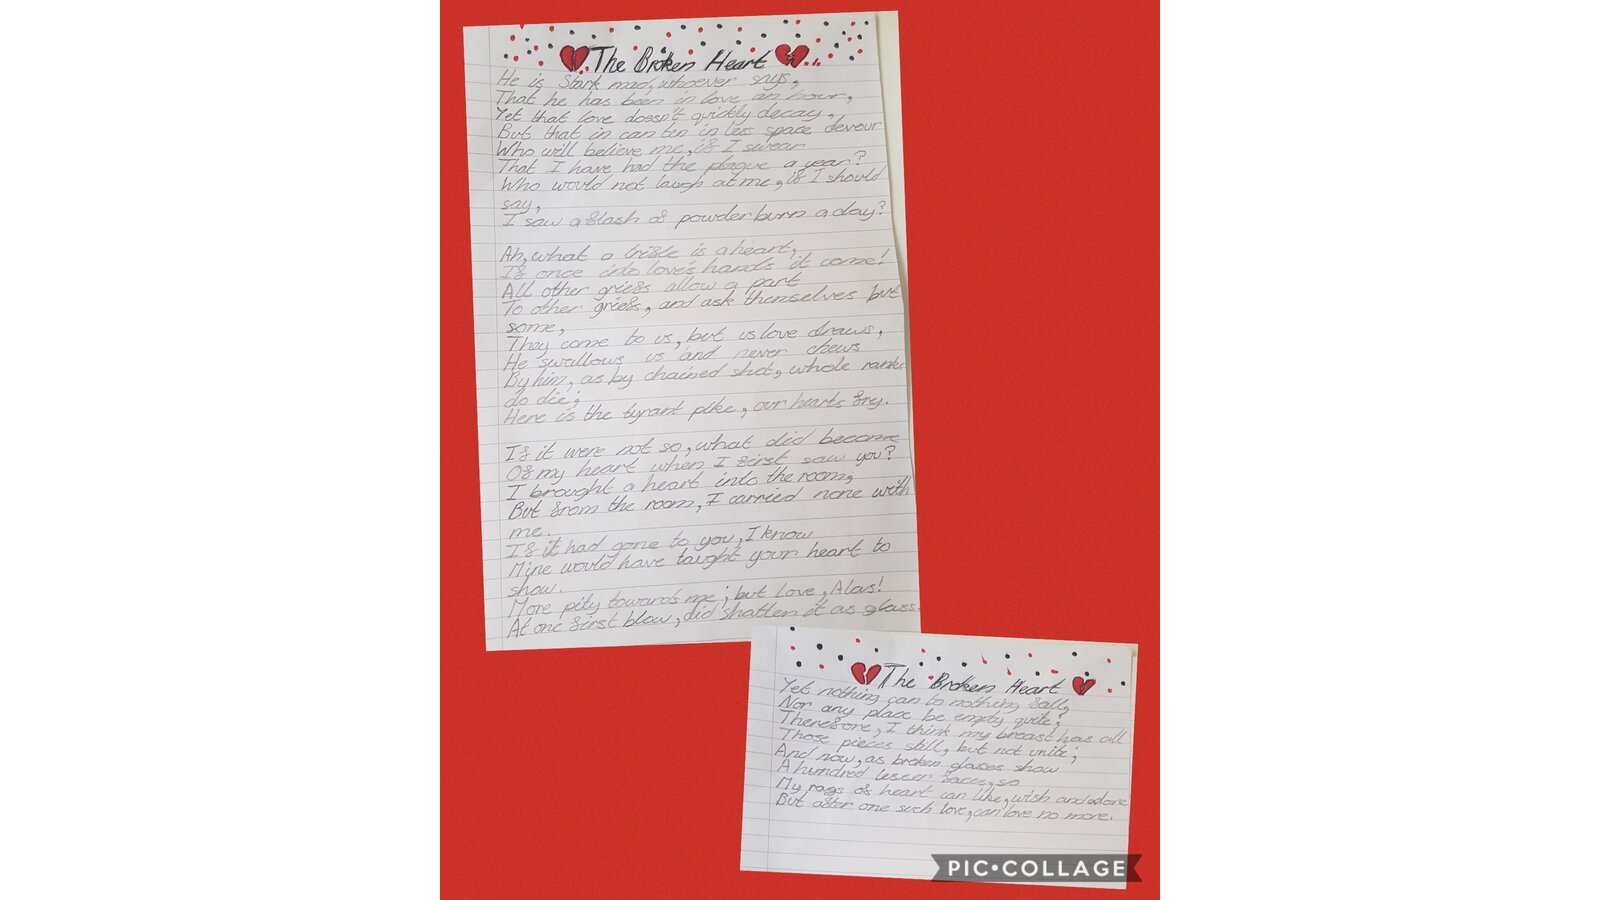 The Broken Heart
He is Stark mad, whoever says,
That he has been in love an hour,
Yet that love doesn't quickly decay,
But that in can ten in less space devour
Who will believe me, if I swear
That I have had the plague a year?
Who would not laugh at me, if I should
say,
I saw a flash of powder burn a day?
Ah, what a trifle is a heart,
If once into love's hands it come!
All other griefs allow a part
To other griefs, and ask themselves but
some,
They come to us, but us love draws,
He swallows us and never chews
By him, as by chained shot, whole ranks
do die;
Here is the tyrant pike, our hearts fry.
If it were not so, what did become
Of my heart when I first saw you?
I brought a heart into the room,
But from the room, I carried none with
me.
If it had gone to you, I know
Mine would have taught your heart to
show.
More pity towards me; but Love, Alas!
At one first blow, did shatten it as glass.
The Broken Heart
Yet nothing can to nothing fall,
Nor any place be empty quite;
Therefore, I think my breast has all
Those pieces still, but not unite;
And now, as broken glasses show
A hundred lesser faces, so
My rags of heart can like, wish and adore
But after one such love, can love no more.
PIC•COLLAGE